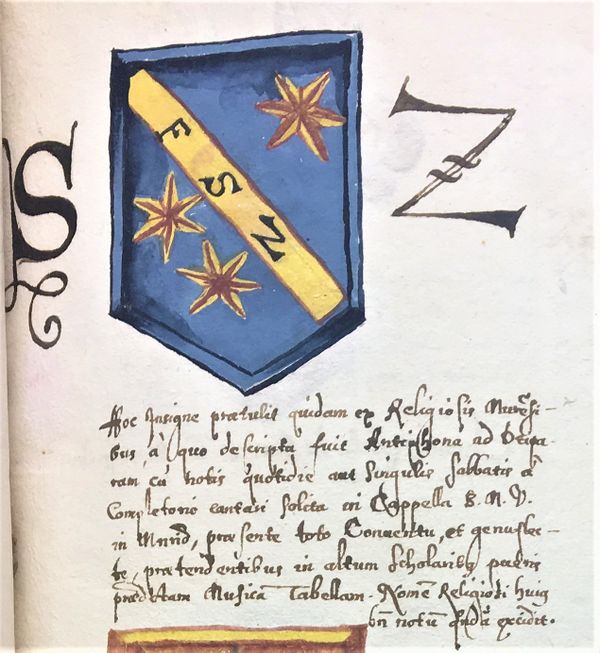 S Z
F S Z
Hoc Insigne prætulit quidam ex Religiosis Murẽsi-
bus, à quo descripta fuit Antiphona ad Deipa-
ram cũ notis quotidie aut singulis sabbatis à
Completorio cantari solita in Cappella B. M. V.
in Mund, præsente toto Conventu, et genuflec-
te, prætendentibus in altum scholaribꝫ pueris
prædictam Musicã Tabellam. Nomẽ Religiosi huiꝰ
bñ notũ excidit.